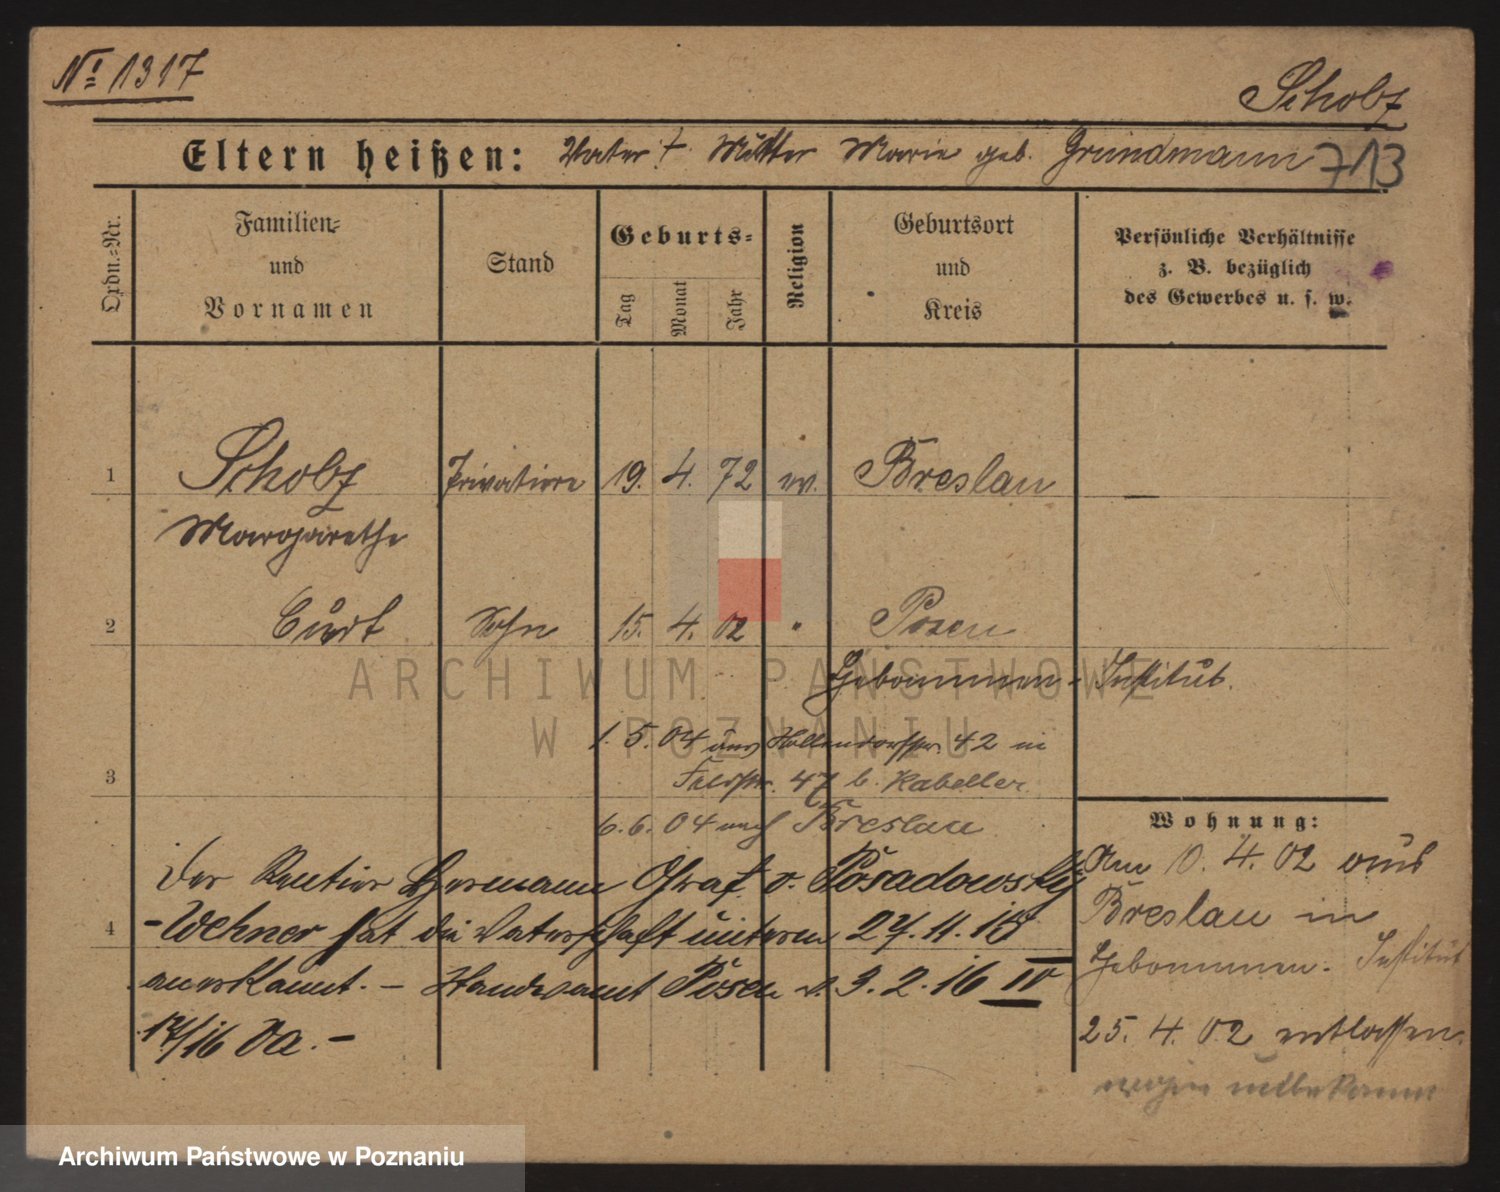 No 1317
Scholz
Eltern heißen: Vater † Mutter Marie geb. Grundmann 713
Ordn.-Nr.
Familien-
und
Vornamen
Stand
Geburts-
Tag
Monat
Jahr
Religion
Geburtsort
und
Kreis
Persönliche Verhältnisse
z. B. bezüglich
des Gewerbes u. s. w.
1 Scholz Privatiere 19. 4. 72 ev. Breslau —
Margarethe
2 Curt Sohn 15. 4. 02 " Posen
Hebammen-Institut.
ARCHIWUM PAŃSTWOWE
W POZNANIU
1. 5. 04 aus 42 in
3
Feldstr. 47 b. Kabeller
6. 6. 04 nach Breslau
Der Rentier Hermann Graf v. Posadowsky
4 -Wehner hat die Vaterschaft unterm 27. 11. 15
anerkannt. - Standesamt Posen v. 3. 2. 16 IV
12/16 Va. -
Wohnung:
Am 10. 4. 02 aus
Breslau in
Hebammen-Institut
25. 4. 02 entlassen.
wohin unbekannt
Archiwum Państwowe w Poznaniu